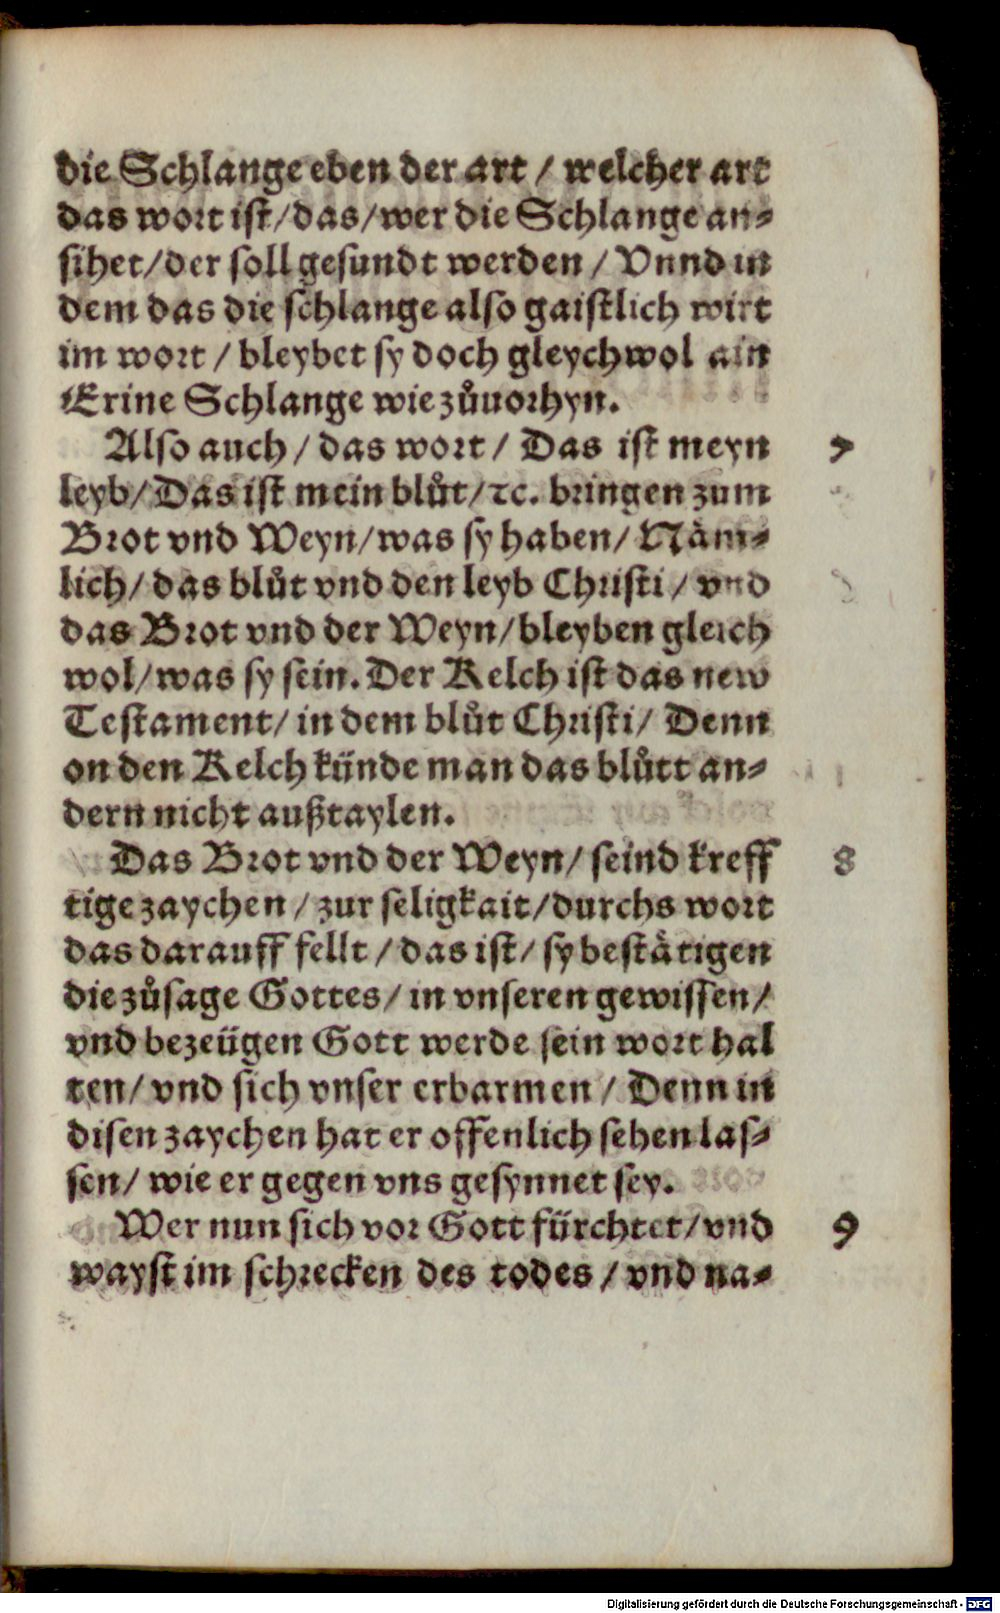 die Schlange eben der art / welcher art
das wort ist/das/wer die Schlange an⸗
sihet/der soll gesundt werden / Vnnd in
dem das die schlange also gaistlich wirt
im wort / bleybet sy doch gleychwol ain
Erine Schlange wie zůuorhyn.
Also auch / das wort / Das ist meyn 7
leyb/ Das ist mein blůt/ ꝛc. bringen zum
Brot vnd Weyn/was sy haben/ Näm⸗
lich/ das blůt vnd den leyb Christi / vnd
das Brot vnd der Weyn/bleyben gleich
wol/was sy sein. Der Kelch ist das new
Testament/ in dem blůt Christi/ Denn
on den Kelch künde man das blůtt an⸗
dern nicht außtaylen.
Das Brot vnd der Weyn/ seind kreff 8
tige zaychen / zur seligkait/durchs wort
das darauff fellt / das ist/ sy bestätigen
die zůsage Gottes/ in vnseren gewissen/
vnd bezeügen Gott werde sein wort hal
ten/ vnd sich vnser erbarmen / Denn in
disen zaychen hat er offenlich sehen las⸗
sen/ wie er gegen vns gesynnet sey.
Wer nun sich vor Gott fürchtet/vnd 9
wayst im schrecken des todes / vnd na⸗
Digitalisierung gefördert durch die Deutsche Forschungsgemeinschaft - DFG